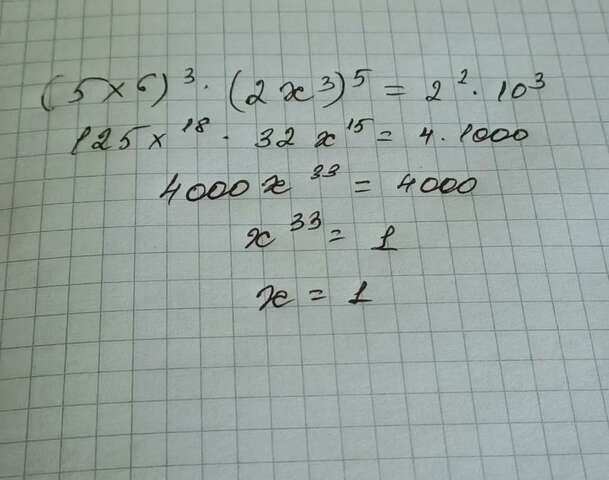 (5x⁶)³ · (2x³)⁵ = 2² · 10³
125x¹⁸ · 32x¹⁵ = 4 · 1000
4000x³³ = 4000
x³³ = 1
x = 1